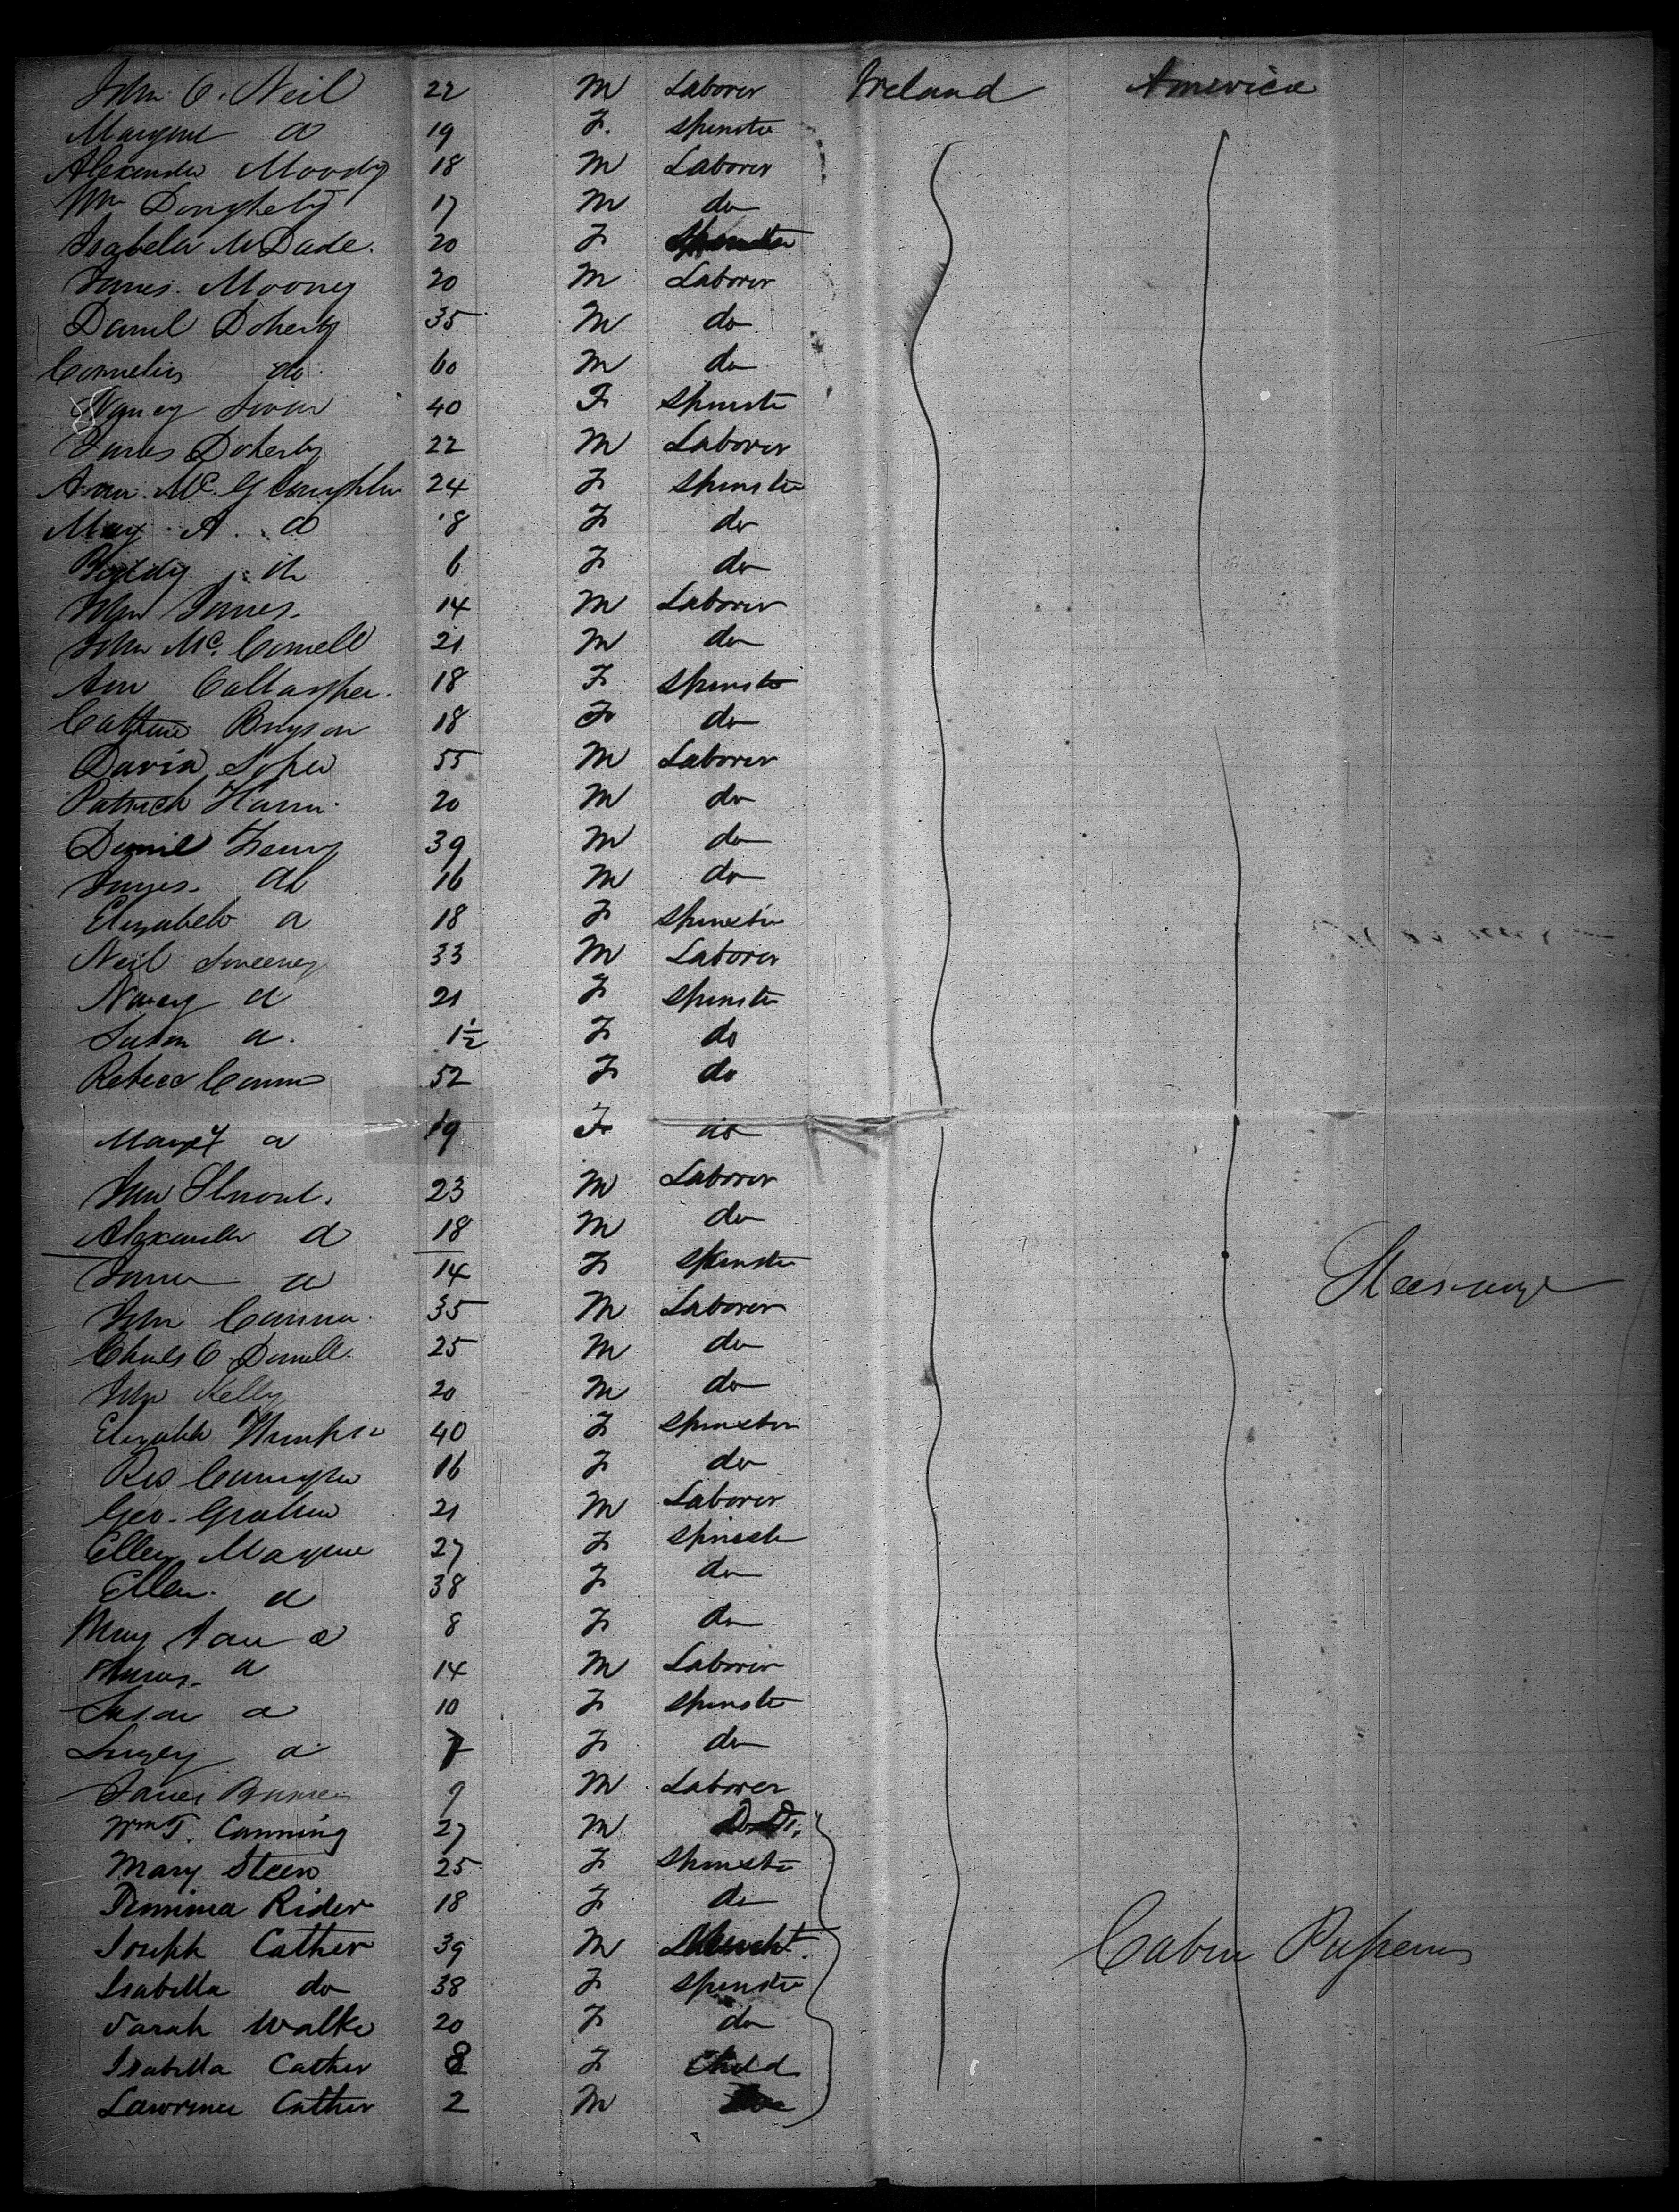 John O. Neil 22 M Laborer Ireland America
Margret do 19 F. Spinster
Alexander Moody 18 M Laborer
Wm Dougherty 17 M do
Isabella McDade. 20 F Spinster
James. Mooney 20 M Laborer
Daniel Doherty 35 M do
Cornelius do 60 M do
Nancy 40 F Spinster
James Doherty 22 M Laborer
Ann. Mc. Glaughlin 24 F Spinster
Mary. A. do 18 F do
Biddy do 6 F do
John James. 14 M Laborer
John Mc. Connell 21 M do
Ann Callagher. 18 F Spinster
Cathrine Bryson 18 F do
David 55 M Laborer
Patrick 20 M do
Daniel 39 M do
James. do 16 M do
Elizabeth do 18 F Spinster
Neil Sweeney 33 M Laborer
Nancy do 21 F Spinster
Susan do. 1½ F do
52 F do
Margt do 19 F do
23 M Laborer
Alexander do 18 M do
do 14 F Spinster Steerage
John 35 M Laborer
Charles O. Donnell. 25 M do
John Kelly 20 M do
Elizabeth 40 F Spinster
16 F do
Geo. Graham 21 M Laborer
Ellen 27 F Spinster
Ellen. do 38 F do
Mary Jane do 8 F do
James. do 14 M Laborer
Susan do 10 F Spinster
do 7 F do
James 9 M Laborer
Wm T. Canning 27 M
Mary Steen 25 F Spinster
Jemima Rider 18 F do
Joseph Cather 39 M Cabin Passengers
Isabella do 38 F Spinster
Sarah Walker 20 F do
Isabella Cather 8 F Child
Lawrence Cather 2 M